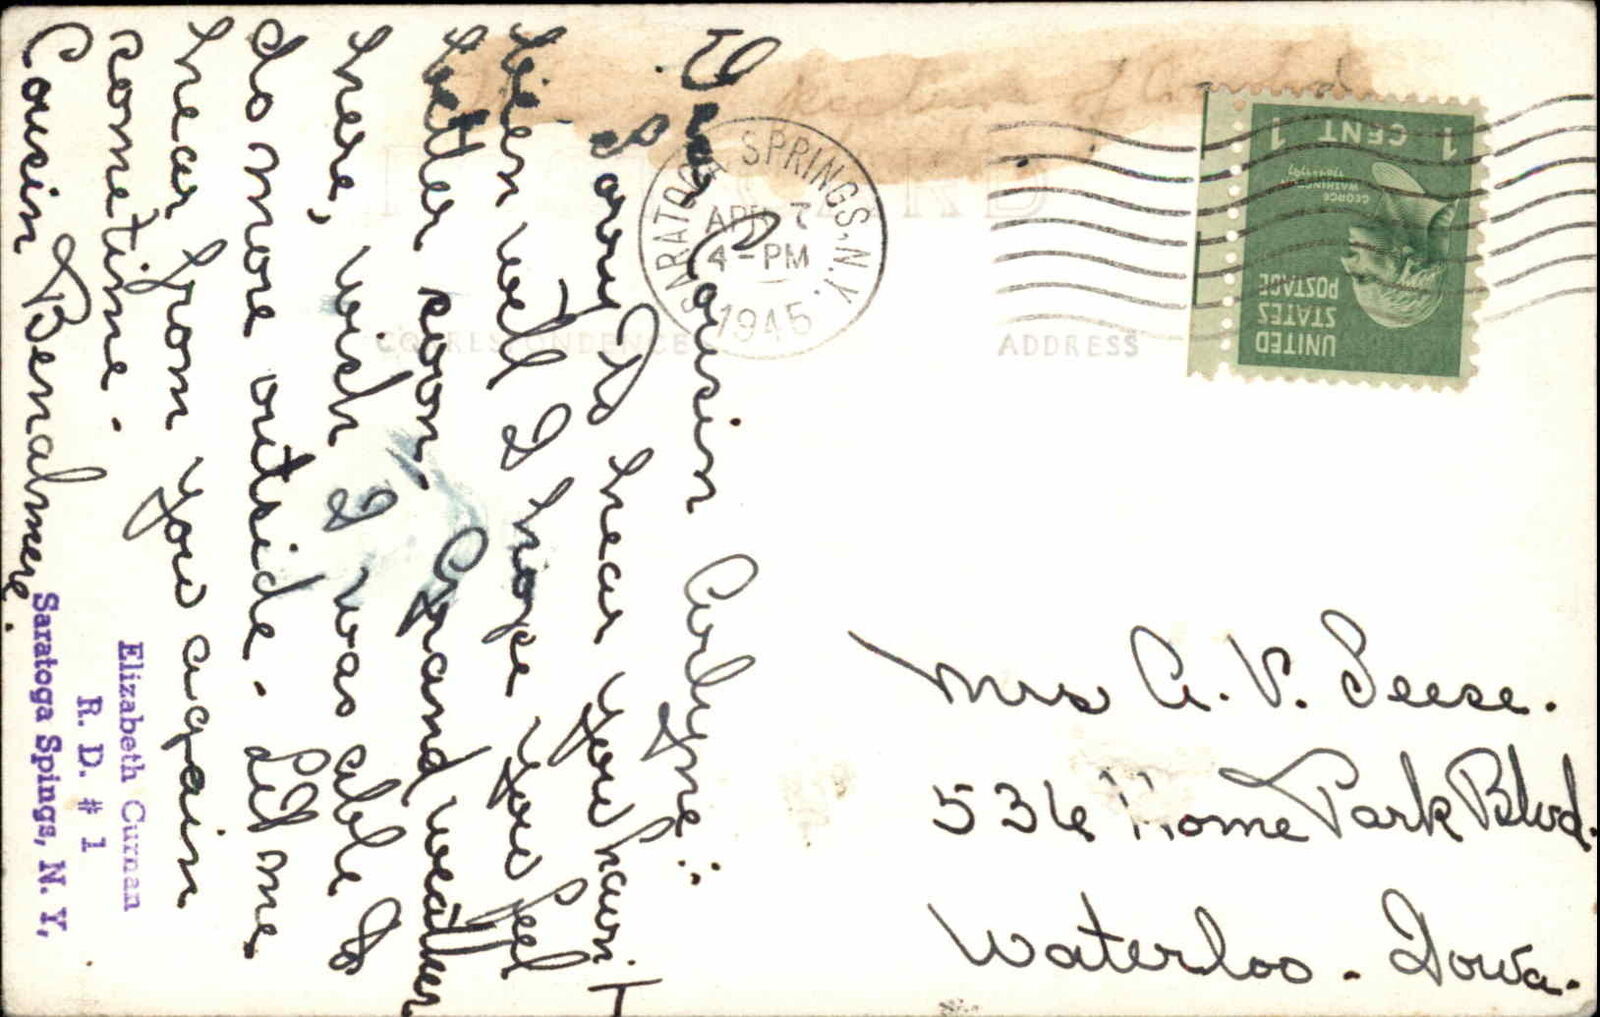 Dear Cousin Arlyne:
So sorry to hear you havn't
been well I hope you feel
better soon. Grand weather
here, wish I was able to
do more outside. Let me
hear from you again
sometime.
Cousin Benalmere.
Elizabeth Curnan
R. D. # 1
Saratoga Spings, N. Y.
POST CARD
CORRESPONDENCE
ADDRESS
SARATOGA SPRINGS, N.Y.
APR 7
4 - PM
1945
1 CENT 1
GEORGE
WASHINGTON
UNITED
STATES
POSTAGE
Mrs A. V. Seese.
536 Home Park Blvd.
Waterloo - Iowa.